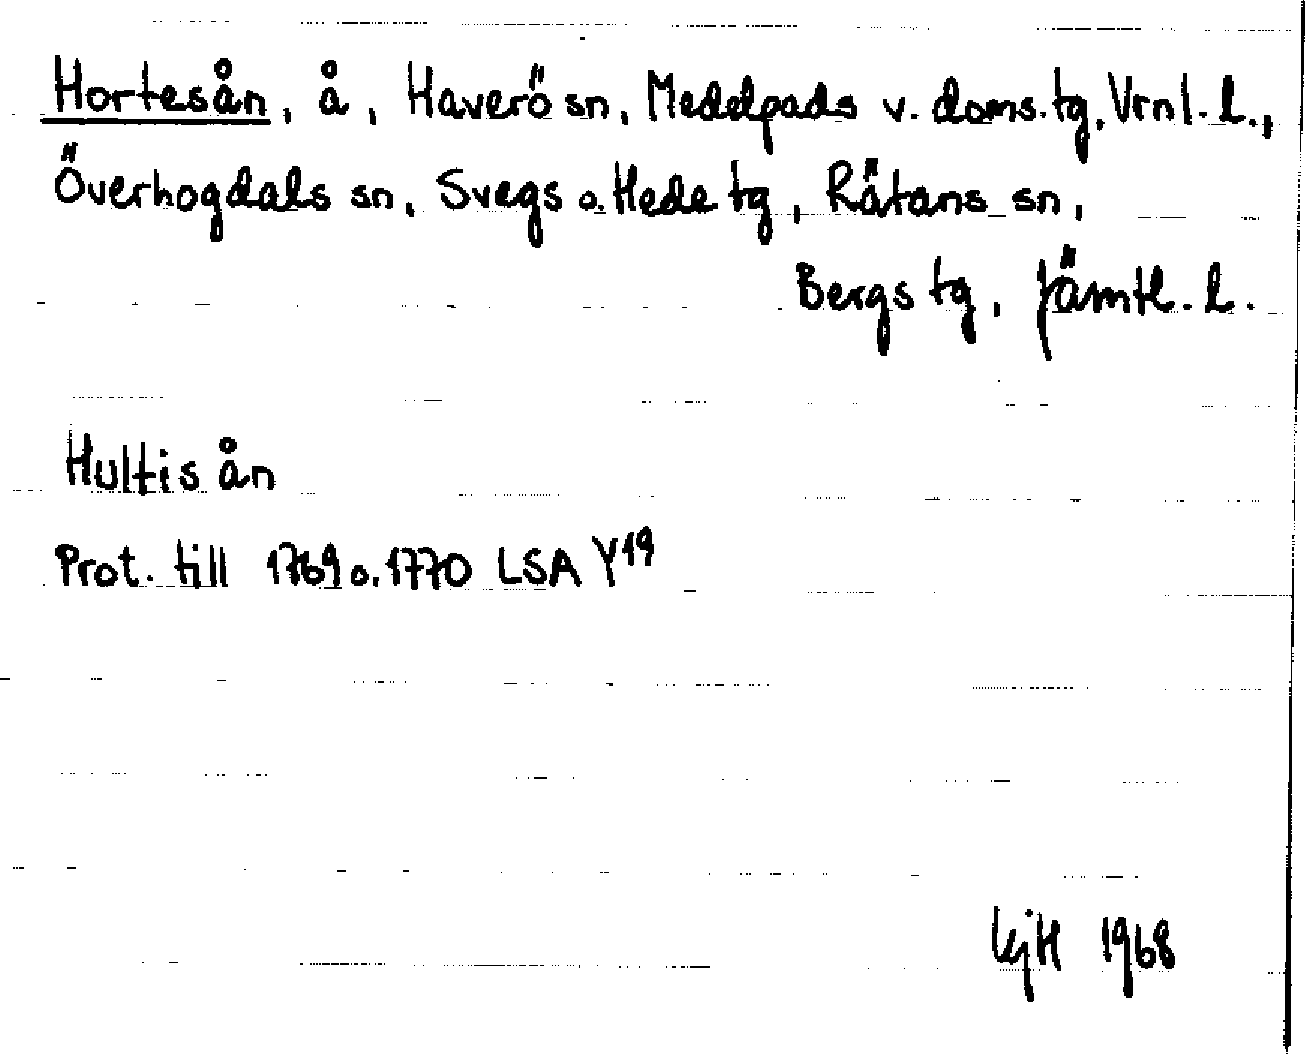 Hortesån, å, Haverö sn, Medelpads v. doms. tg, Vrnl. l.,
Överhogdals sn, Svegs o. Hede tg, Rätans sn,
Bergs tg, Jämtl. l.
Hultis ån
Prot. till 1769 o. 1770 LSA Y19
KjH 1968